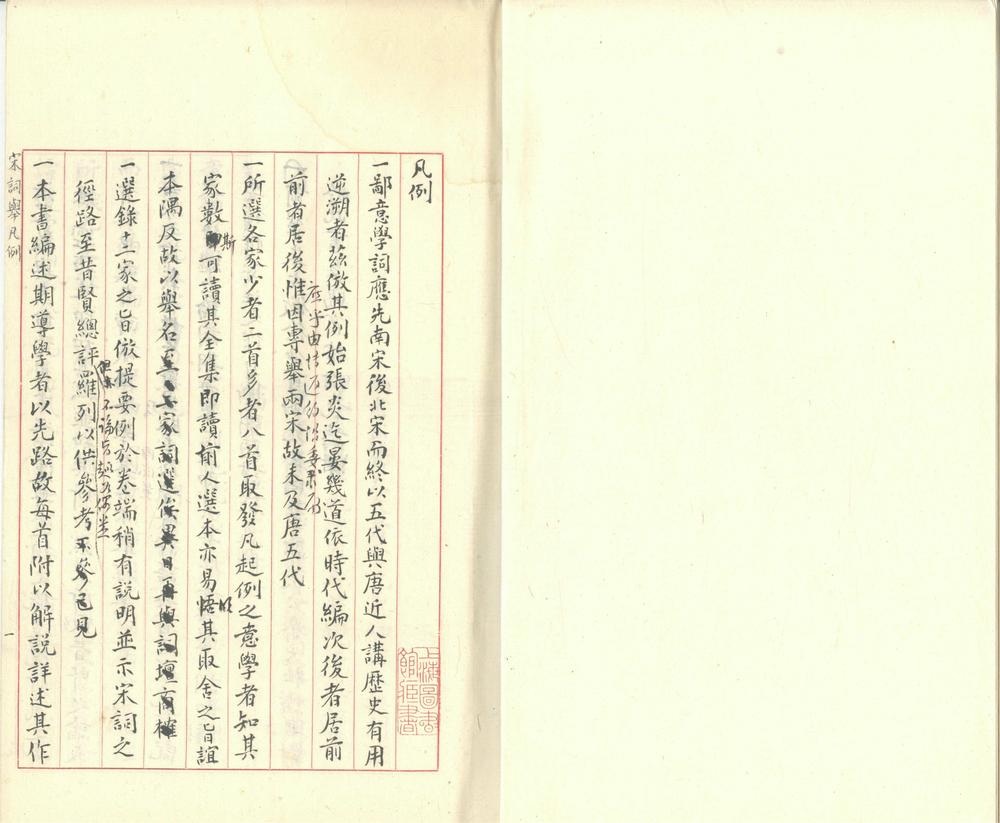 凡例
一鄙意學詞應先南宋後北宋而終以五代與唐近人講歷史有用
逆溯者茲倣其例始張炎迄晏幾道依時代編次後者居前
前者居後惟因專舉兩宋故未及唐五代
一所選各家少者二首多者八首取發凡起例之意學者知其
家數斯可讀其全集即讀前人選本亦易悟其取舍之旨誼
本隅反故以舉名至家詞選俟異日再與詞壇商榷
一選錄十二家之旨倣提要例於卷端稍有說明並示宋詞之
徑路至昔賢總評羅列以供參考不參己見
一本書編述期導學者以先路故每首附以解說詳述其作
宋詞舉凡例
一
上海圖書館藏書